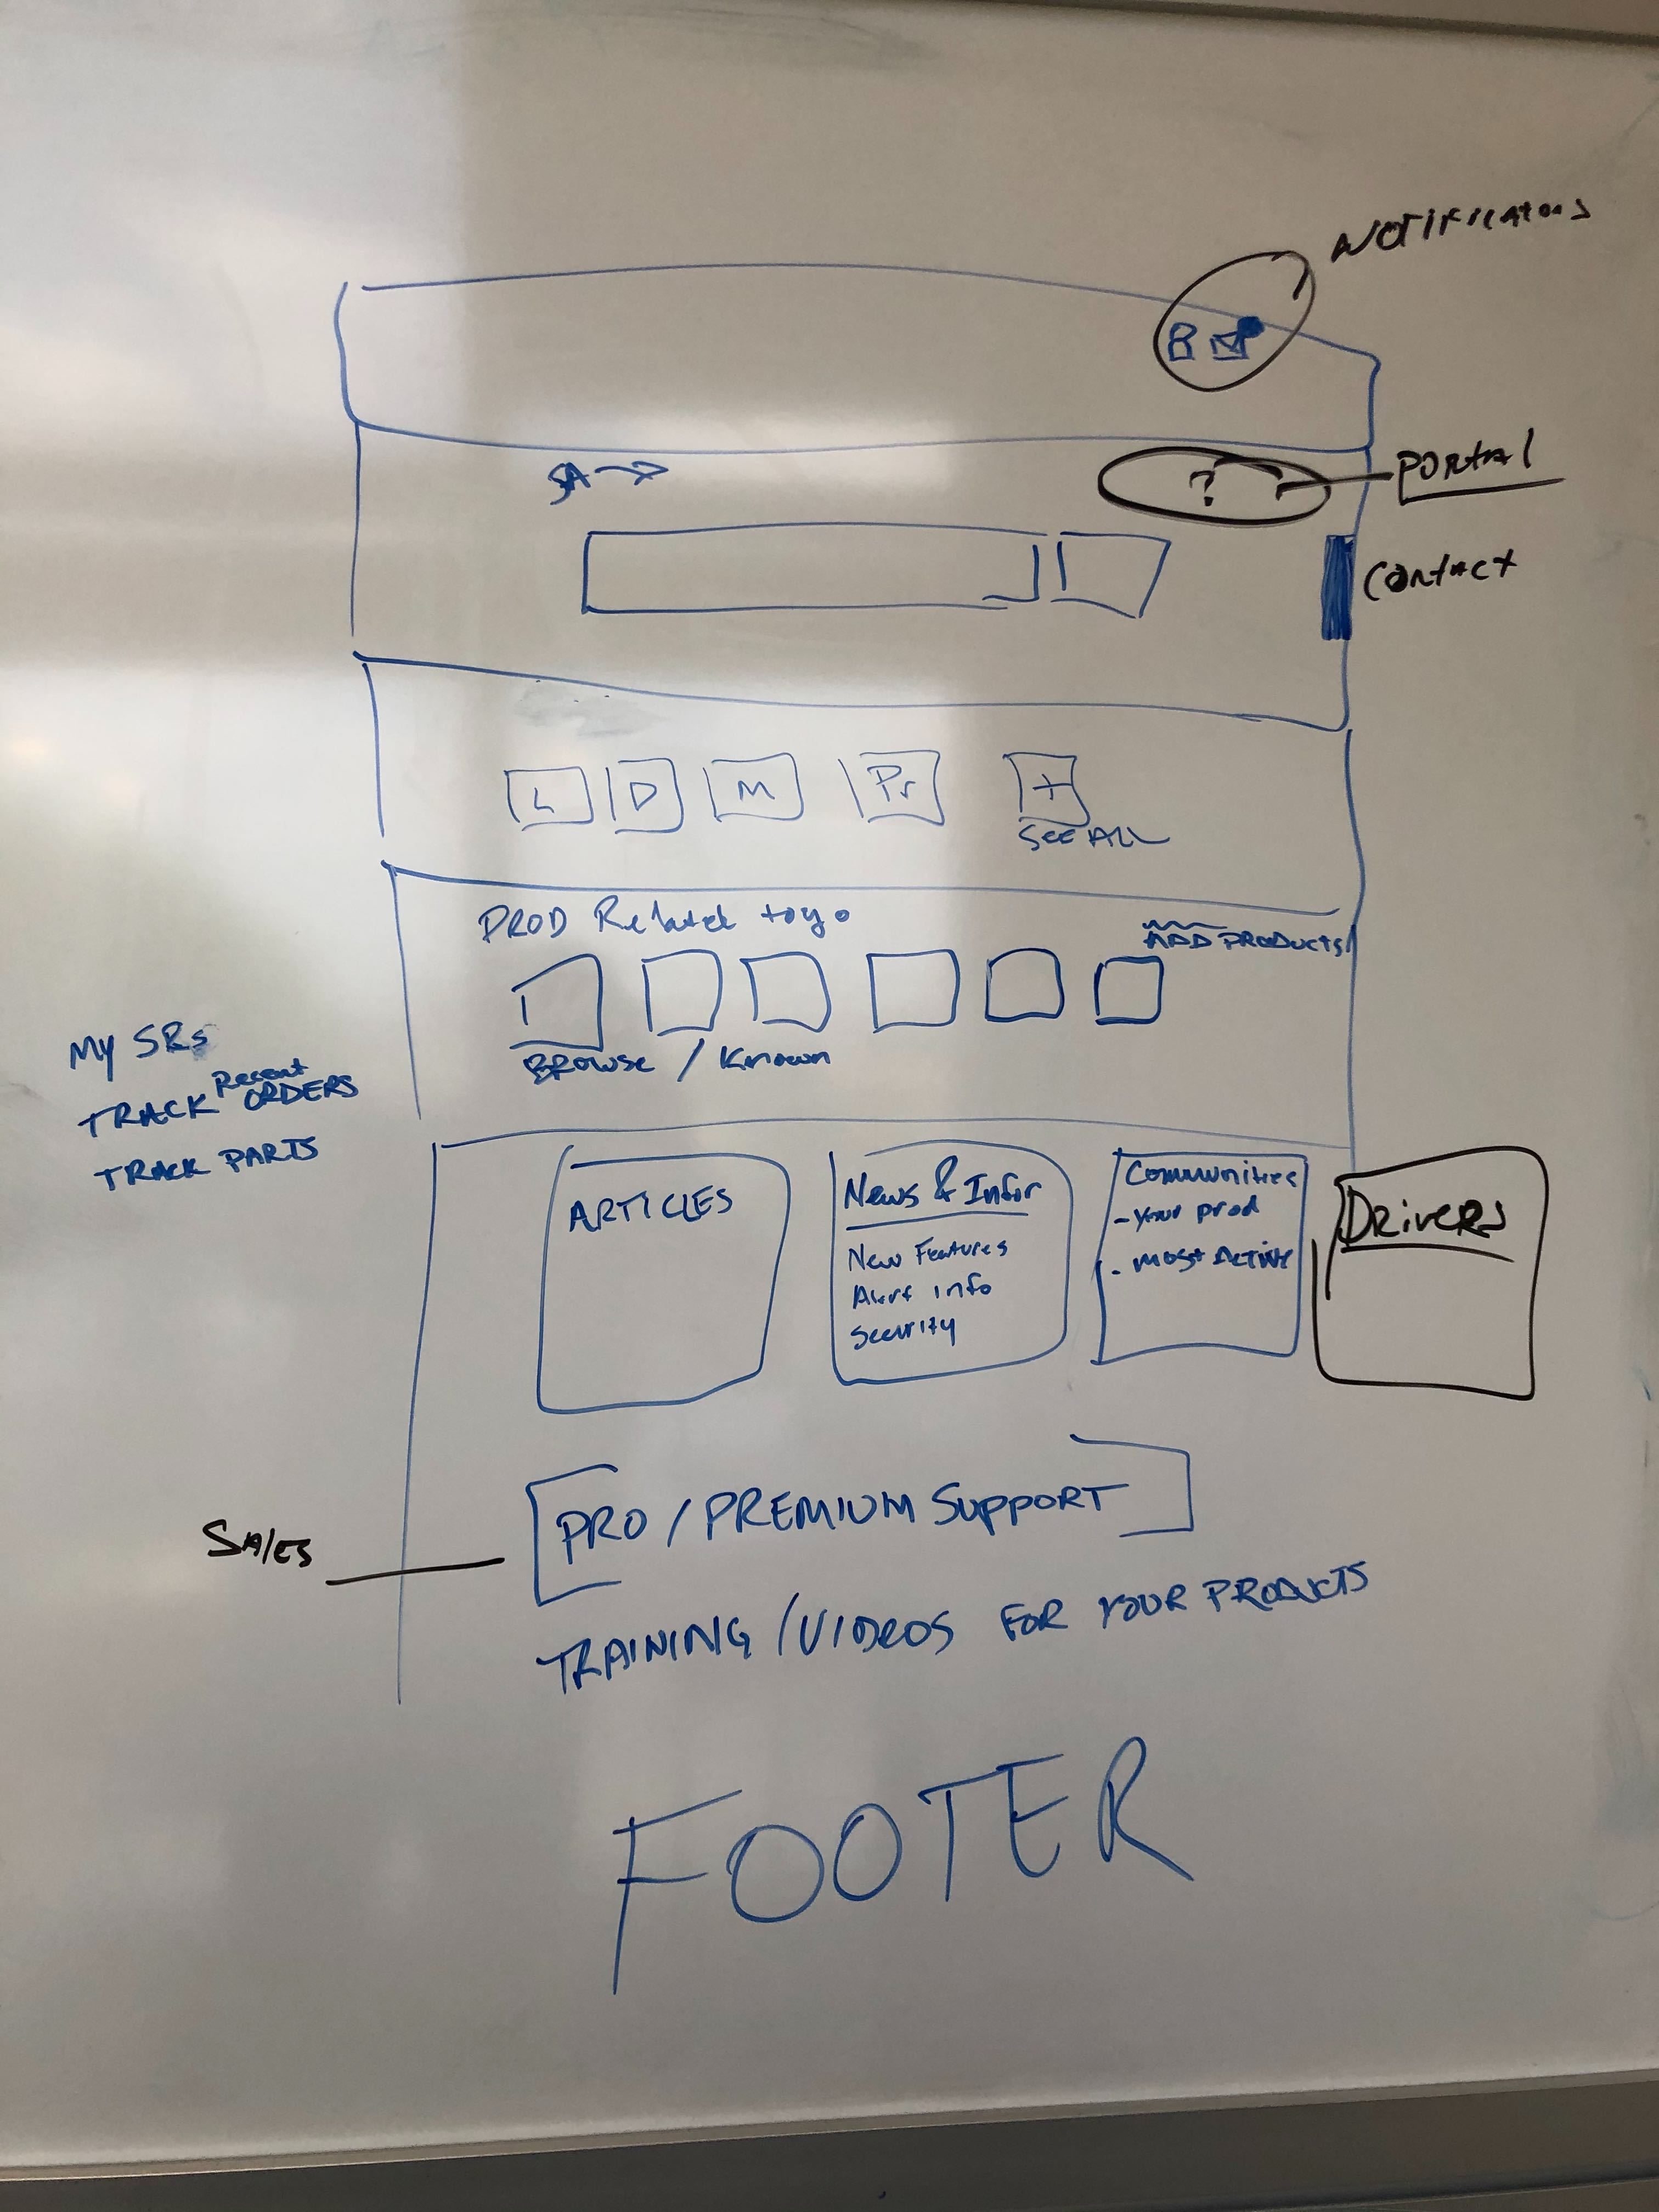 NOTIFICATIONS
B
SA
?
PORTAL
Contact
L D M Pr +
SEE ALL
PROD Related to you
ADD PRODUCTS
BROWSE / Known
My SRs
TRACK Recent ORDERS
TRACK PARTS
ARTICLES
News & Infor
New Features
Alert info
Security
Communities
- your prod
- most Active
DRIVERS
PRO / PREMIUM SUPPORT
SALES
TRAINING / VIDEOS FOR YOUR PRODUCTS
FOOTER